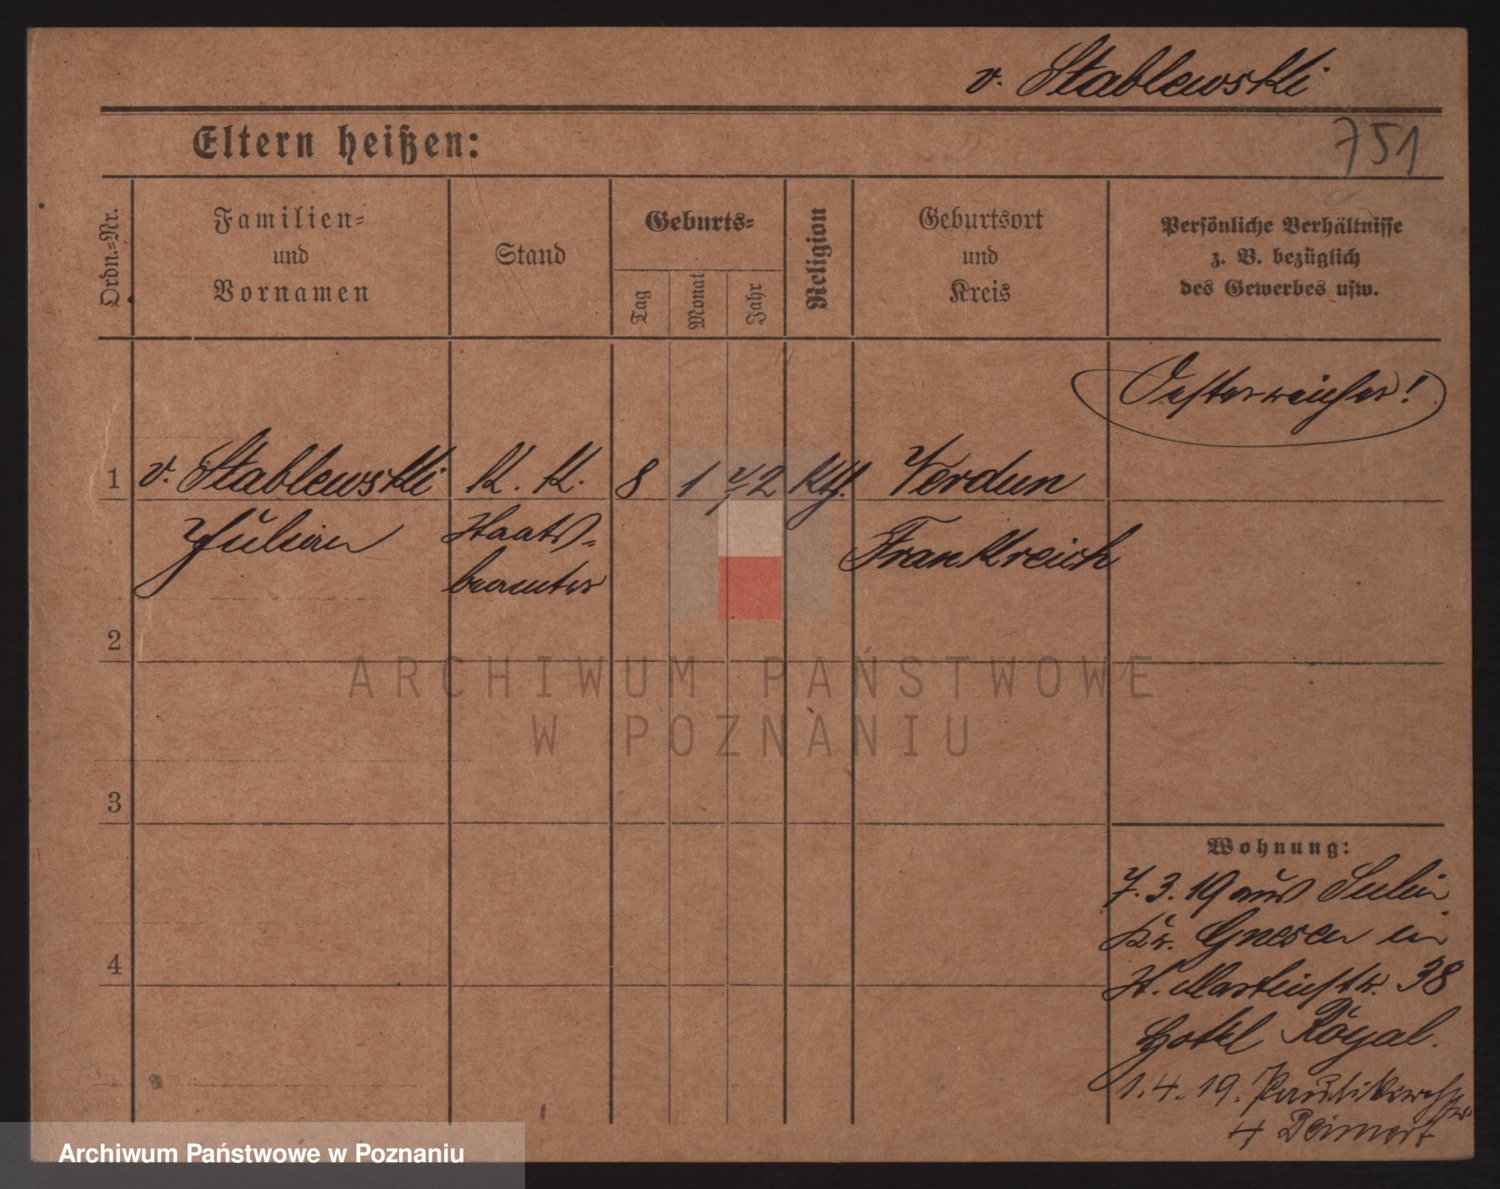 v. Stablewski
Eltern heißen:
751
Ordn.-Nr.
Familien-
und
Vornamen
Stand
Geburts-
Tag
Monat
Jahr
Religion
Geburtsort
und
Kreis
Persönliche Verhältnisse
z. B. bezüglich
des Gewerbes usw.
Oesterreicher!
1 v. Stablewski K. K. 8 1 72 Kth. Verdun
Julian Staats- Frankreich
beamter
2
3
4
Wohnung:
7.3.19 aus Sulin
Kr. Gnesen in
St. Martinstr. 38
Hotel Royal.
1.4.19. Paulikirchstr.
4 Deimert
ARCHIWUM PAŃSTWOWE
W POZNANIU
Archiwum Państwowe w Poznaniu